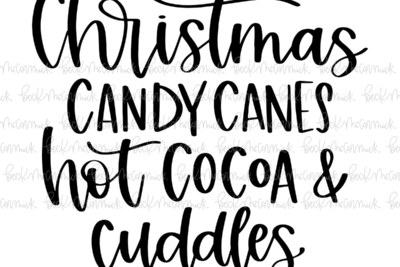 Christmas
CANDY CANES
hot COCOA &
cuddles